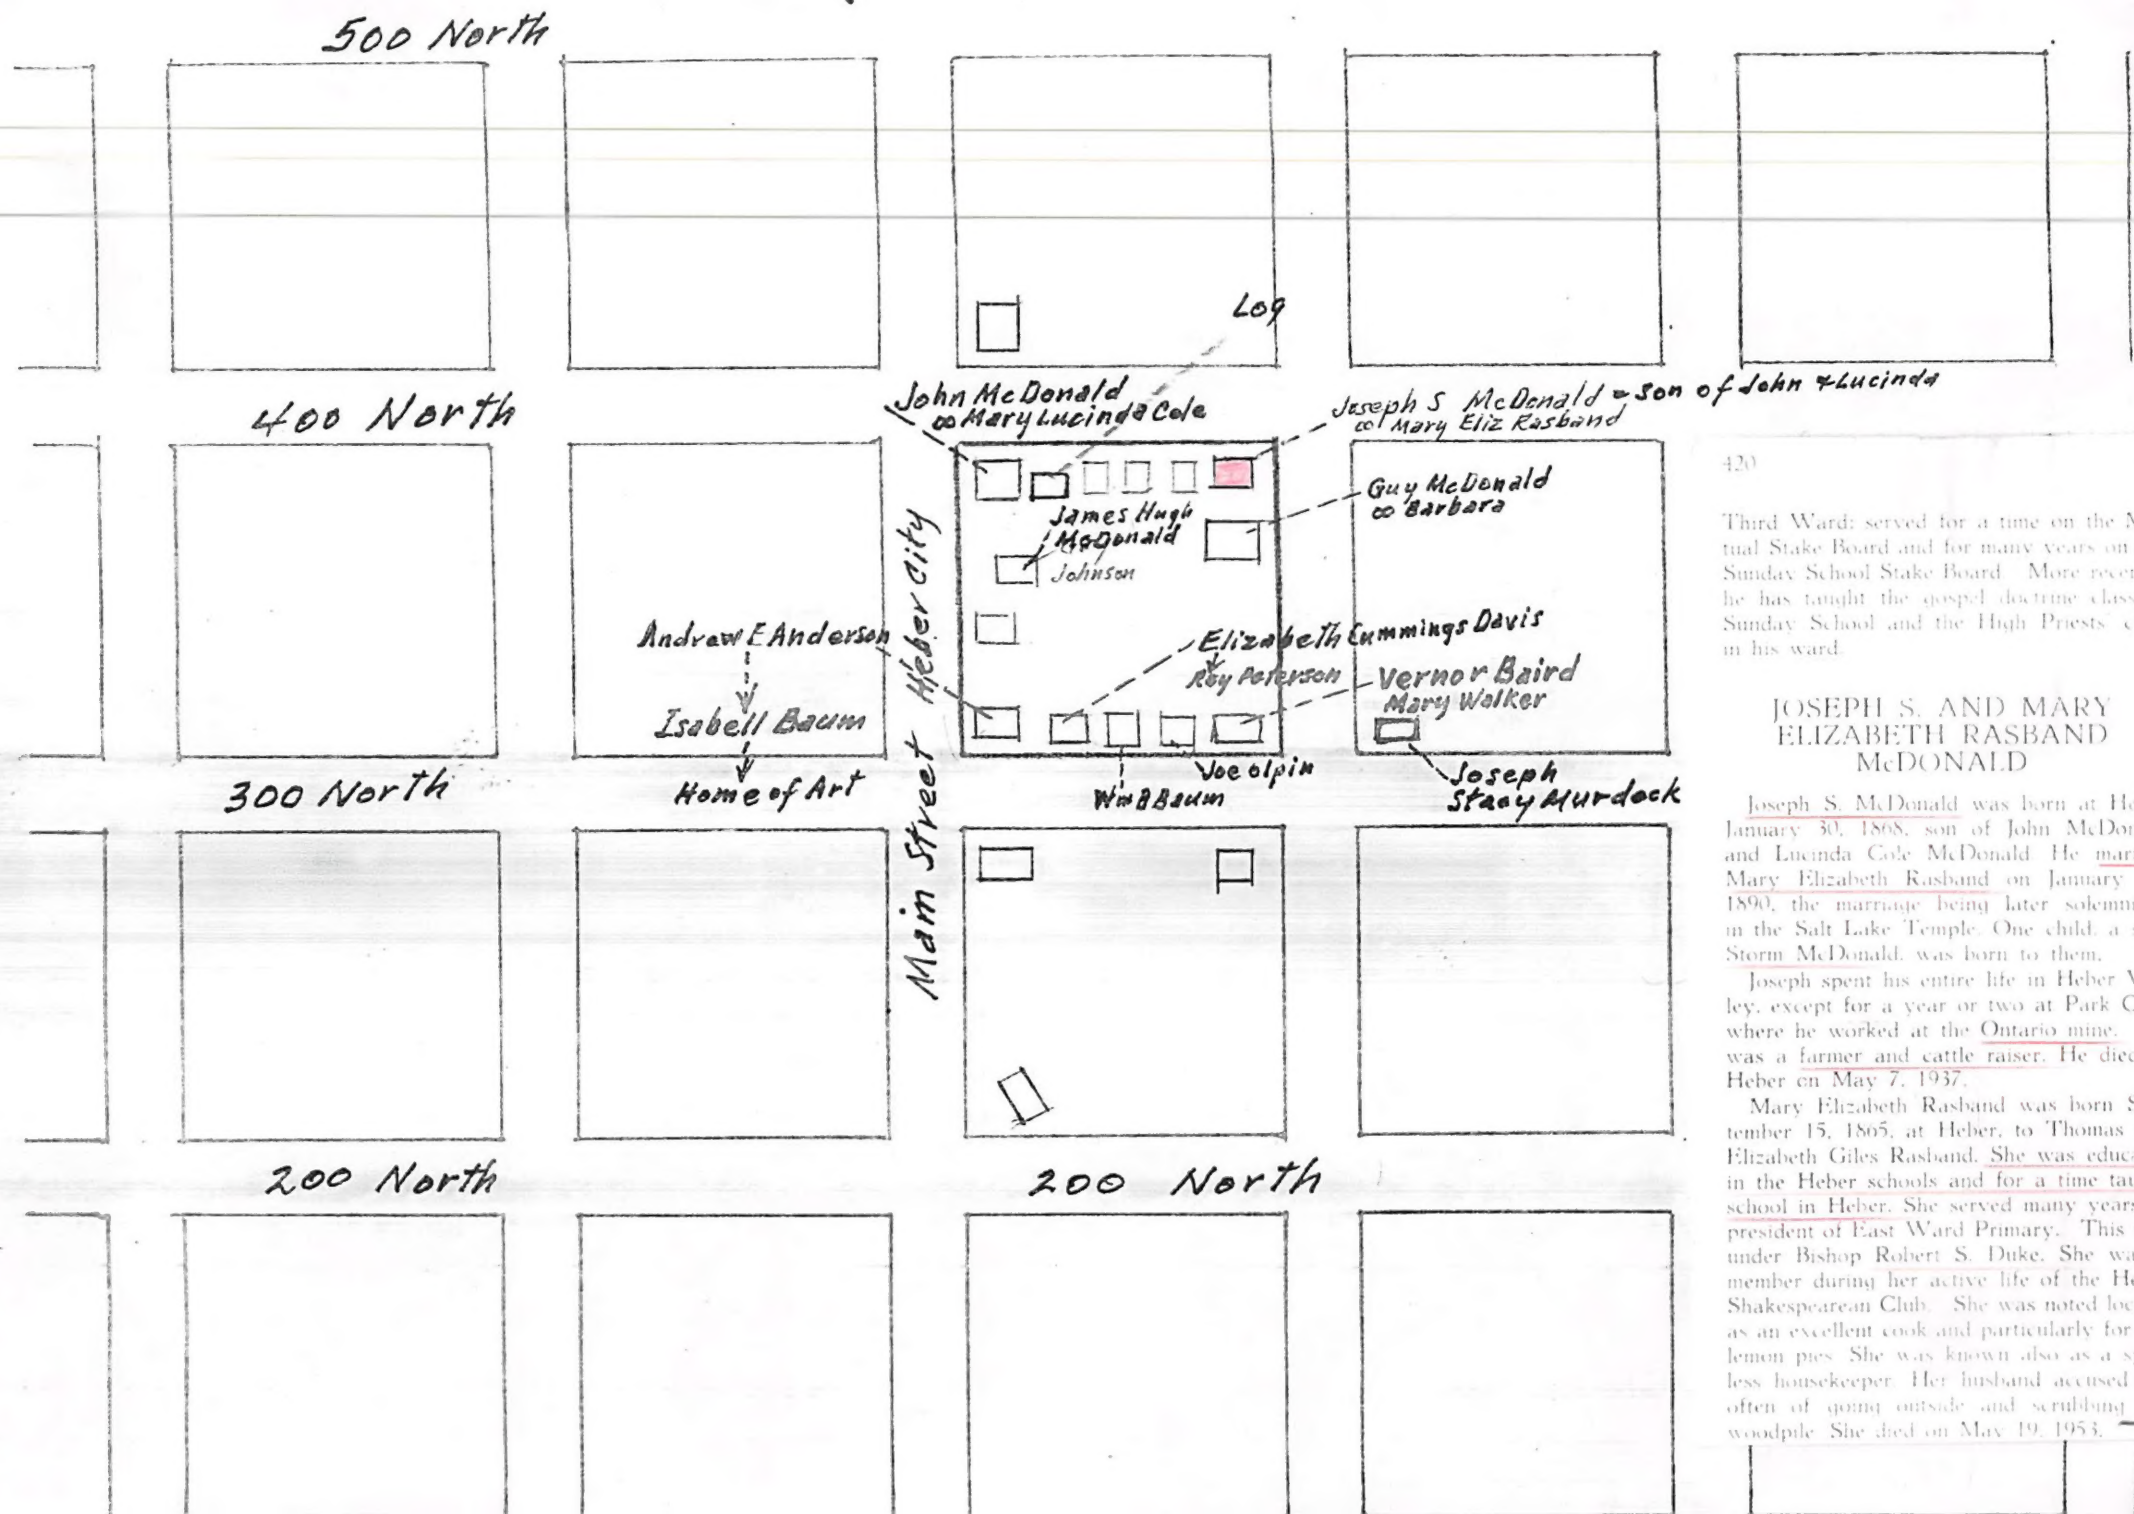 500 North
Log
400 North
John McDonald
∞ Mary Lucinda Cole
Joseph S McDonald = Son of John & Lucinda
∞ Mary Eliz Rasband
Guy McDonald
∞ Barbara
James Hugh
McDonald
Johnson
Main Street Heber City
Andrew E Anderson
Isabell Baum
Home of Art
Elizabeth Cummings Davis
Roy Peterson
Vernor Baird
Mary Walker
Joe Olpin
Wm B Baum
Joseph
Stacy Murdock
300 North
200 North
200 North
420
Third Ward; served for a time on the
tual Stake Board and for many years on
Sunday School Stake Board. More
he has taught the gospel doctrine
Sunday School and the High Priests'
in his ward.
JOSEPH S. AND MARY
ELIZABETH RASBAND
McDONALD
Joseph S. McDonald was born at
January 30, 1868, son of John
and Lucinda Cole McDonald. He
Mary Elizabeth Rasband on January
1890, the marriage being later
in the Salt Lake Temple. One child, a
Storm McDonald, was born to them.
Joseph spent his entire life in Heber
ley, except for a year or two at Park
where he worked at the Ontario mine.
was a farmer and cattle raiser. He
Heber on May 7, 1937.
Mary Elizabeth Rasband was born
tember 15, 1865, at Heber, to Thomas
Elizabeth Giles Rasband. She was
in the Heber schools and for a time
school in Heber. She served many years
president of East Ward Primary. This
under Bishop Robert S. Duke. She
member during her active life of the
Shakespearean Club. She was noted
as an excellent cook and particularly for
lemon pies. She was known also as a
less housekeeper. Her husband accused
often of going outside and scrubbing
woodpile. She died on May 19, 1953.